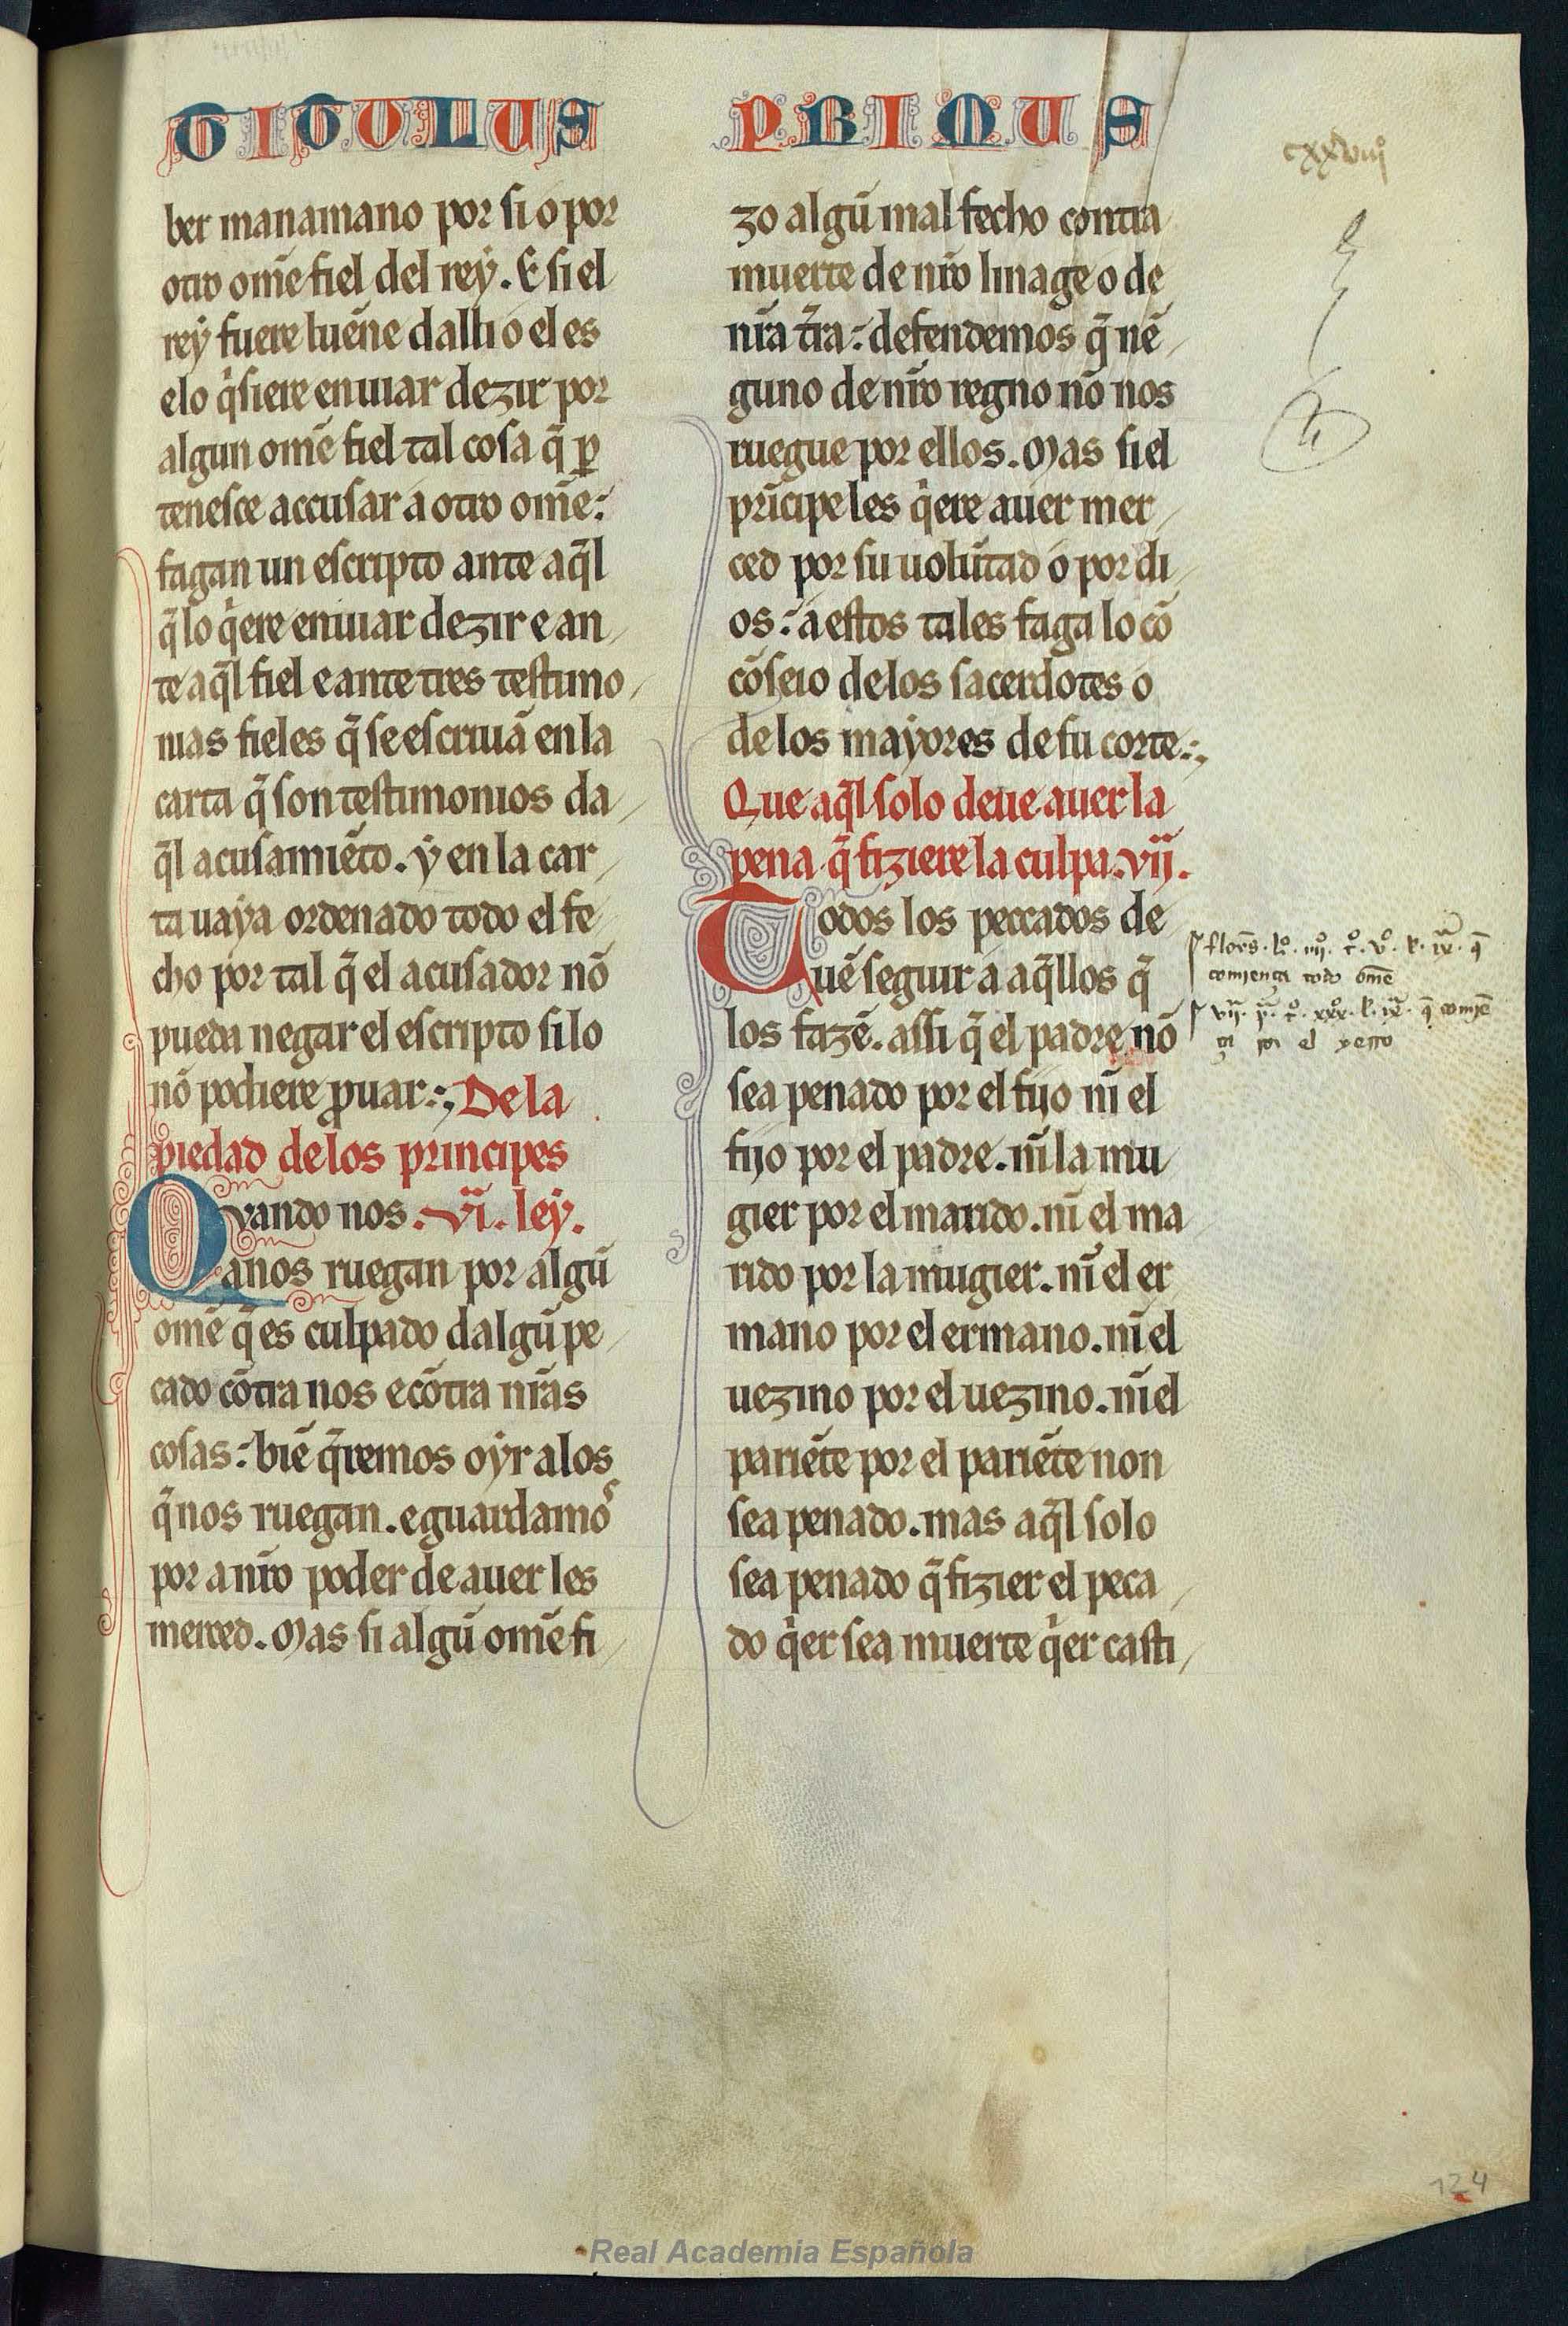 TITULUS PRIMUS
cxxviiijº
ber manamano por si o por
otro om̃e fiel del rey. E si el
rey fuere luẽne dalli o el es
e lo q̇siere enuiar dezir por
algun om̃e fiel tal cosa q̃ ꝑ
tenesce accusar a otro om̃e:
fagan un escripto ante aq̃l
q̃ lo q̇ere enuiar dezir e an
te aq̃l fiel e ante tres testimo
nias fieles q̃ se escriuã en la
carta q̃ son testimonios da
q̃l acusamiẽto. y en la car
ta uaya ordenado todo el fe
cho por tal q̃ el acusador nõ
pueda negar el escripto si lo
nõ podiere ꝓuar:; De la
piedad delos principes
Quando nos .vi. ley.
anos ruegan por algũ
om̃e q̃ es culpado dalgũ pe
cado cõtra nos e cõtra nr̃as
cosas: biẽ q̃remos oyr alos
q̃ nos ruegan. e guardamoˢ
por a nr̃o poder de auer les
merced. Mas si algũ om̃e fi
zo algũ mal fecho contra
muerte de nr̃o linage o de
nr̃a tr̃ra: defendemos q̃ nẽ
guno de nr̃o regno nõ nos
ruegue por ellos. Mas si el
prĩcipe les q̇ere auer mer
ced por su uolũtad o por di
os: a estos tales faga lo cõ
cõseio delos sacerdotes o
de los mayores de su corte:;
Que aq̃l solo deue auer la
pena q̃ fiziere la culpa. vij.
Todos los peccados de
uẽ seguir a aq̃llos q̃
los fazẽ. assi q̃ el padre nõ
sea penado por el fijo nĩ el
fijo por el padre. nĩ la mu
gier por el marido. nĩ el ma
rido por la mugier. nĩ el er
mano por el ermano. nĩ el
uezino por el uezino. nĩ el
pariẽte por el pariẽte non
sea penado. mas aq̃l solo
sea penado q̃ fizier el peca
do q̇er sea muerte q̇er casti
flores. lº. iiijº. tº. vº. l. ix. q̃
comjença todo om̃e
vij. pª. tº. xxxº. l. ix. q̃ comjẽ
ça por el yerro
124
Real Academia Española